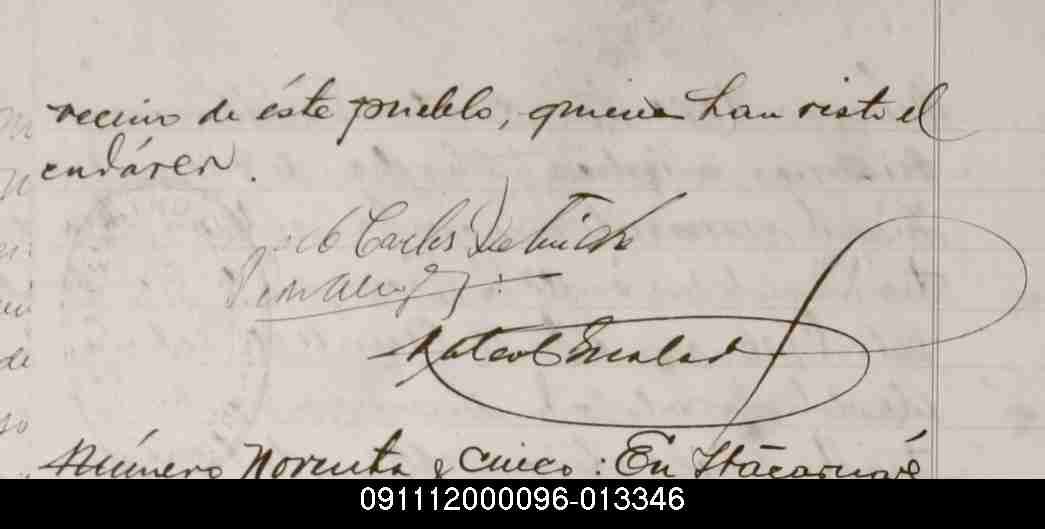 vecino de éste pueblo, quiene han visto el
cadáver.
Carlos
Mateo
Número Noventa y cinco: En Itacaruaré
091112000096-013346